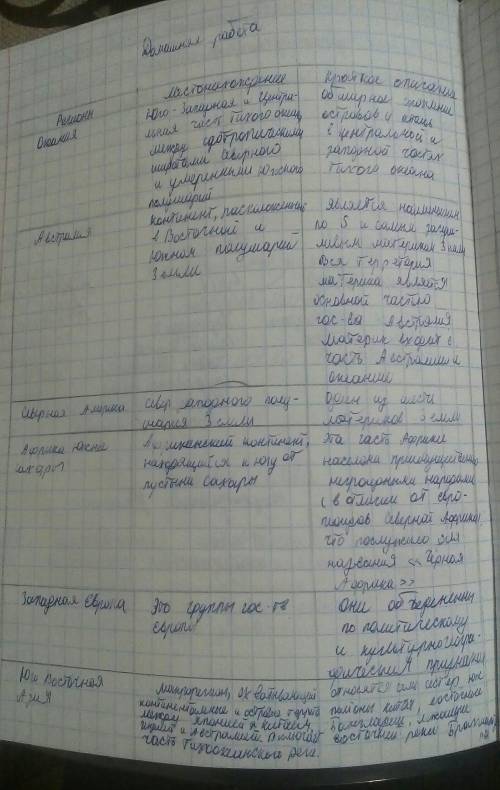 Домашняя работа
Регионы
местонахождение
Краткое описание
Океания
Юго-Западная и Центра-
льная часть Тихого океана,
между субтропическими
широтами Северного
и умеренными Южного
полушарий
обширное скопление
островов и
в центральной и
западной частях
Тихого океана
Австралия
континент, расположенный
в Восточной и
Южном полушарии
Земли
является наименьшим
по S и самым засуш-
ливым материком Земли
Вся территория
материка является
основной частью
гос-ва Австралия
материк входит в
часть Австралии и
океании
Северная Америка
Север западного полу-
шария Земли
один из шести
материков Земли
Африка южнее
сахары
Африканский континент,
находящийся к югу от
пустыни Сахары
Эта часть Африки
населена преимущественно
негроидными народами
(в отличии от евро-
пеоидов Северной Африки)
что послужило для
названия «Чёрная
Африка»
Западная Европа
Это группы гос-тв
Европы
Они объеденены
по политическому
и культурногеогра-
фическим признакам
Юго Восточная
Азия
макрорегион, охватывающий
континентальные и острова
между японией и китаем,
индией и Австралией
часть Тихоокеанского
относятся
районы китая, восточные
лежащие
восточнее реки